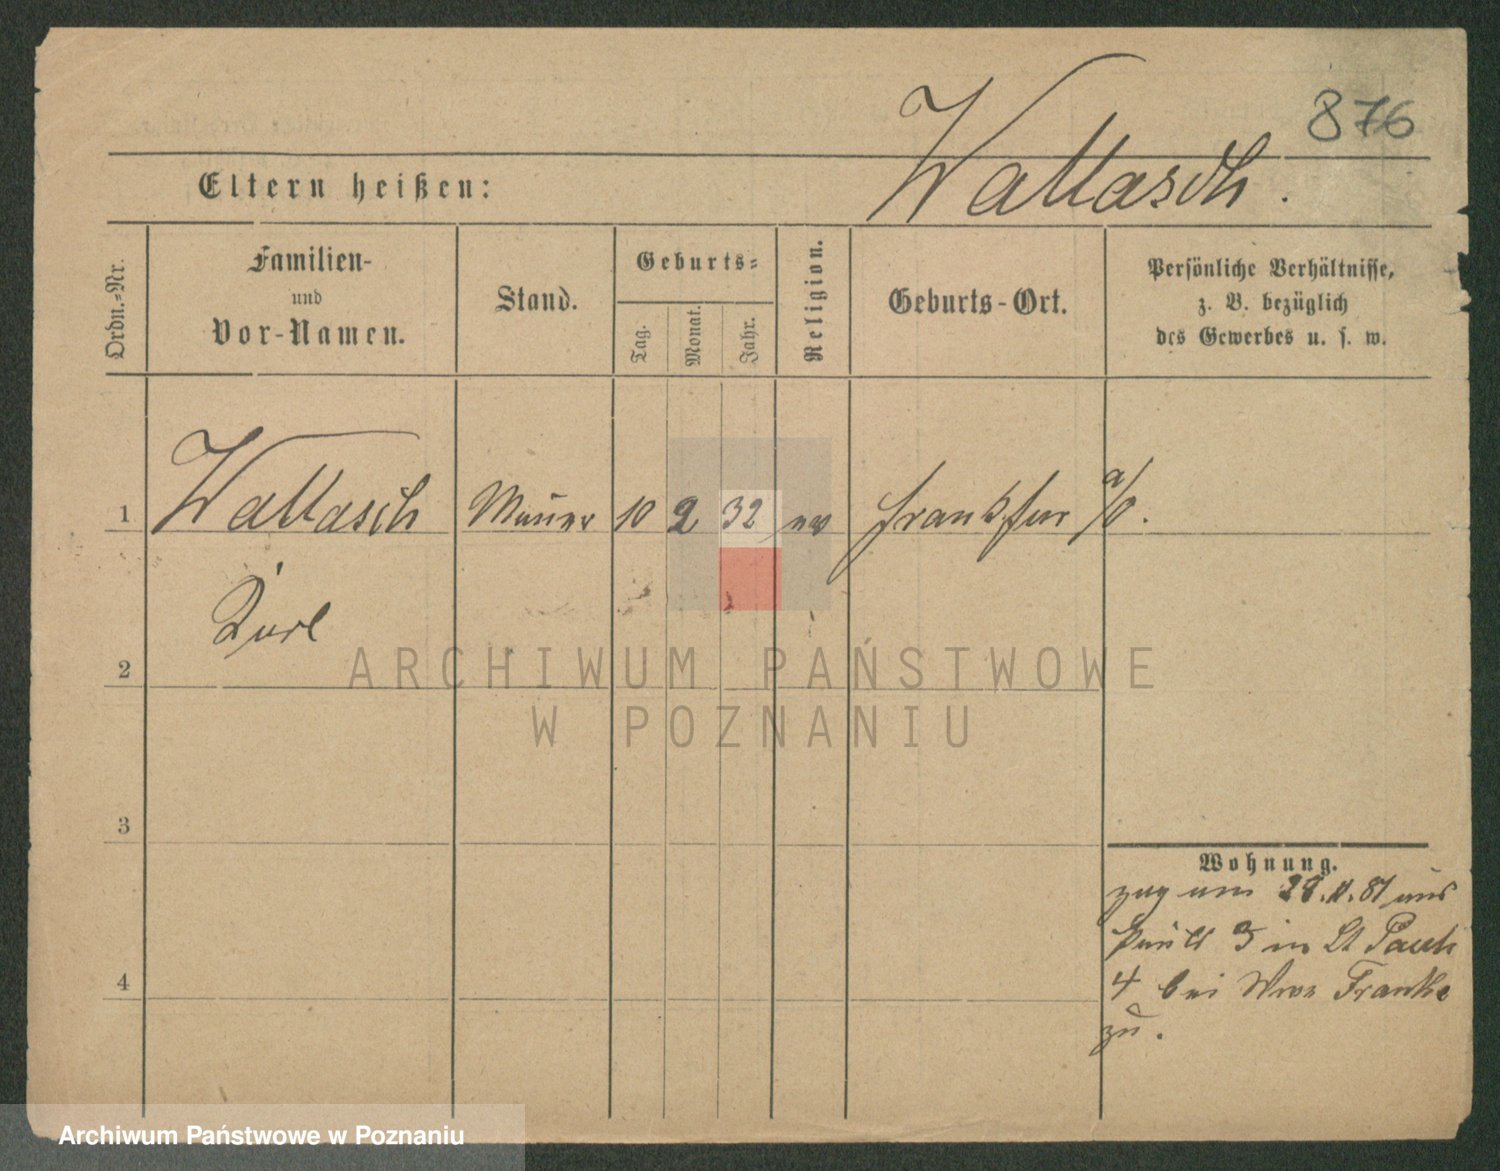 876
Wattasch.
Eltern heißen:
Ordn.=Nr.
Familien-
und
Vor-Namen.
Stand.
Geburts=
Tag.
Monat.
Jahr.
Religion.
Geburts-Ort.
Persönliche Verhältnisse,
z. B. bezüglich
des Gewerbes u. s. w.
1 Wattasch Maurer 10 2 32 ev Frankfur a/O.
Karl
2
3
4
Wohnung.
zog am 28. 81 aus
3 in St Pauli
4 bei Wwe Franke
zu.
ARCHIWUM PAŃSTWOWE
W POZNANIU
Archiwum Państwowe w Poznaniu